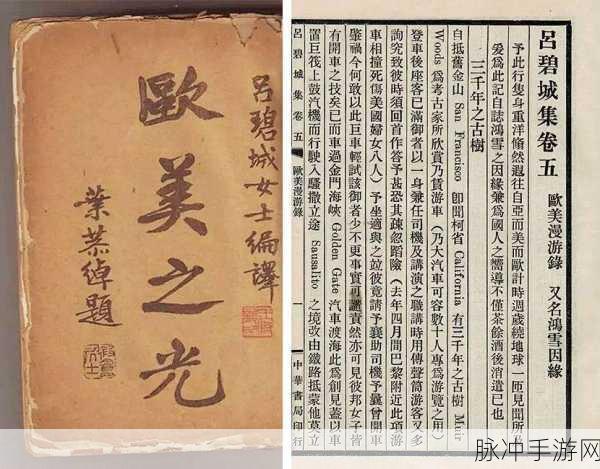 呂碧城女士編譯
歐美之光
葉恭綽題
呂碧城集卷五
歐美漫游錄 又名鴻雪因緣
予此行隻身重洋翛然遐往自亞而美而歐計時週歲繞地球一匝見聞所及
爰爲此記自誌鴻雪之因緣兼爲國人之嚮導不僅茶餘酒後消遣已也
三千年之古樹
自抵舊金山 San Francisco 卽聞柯省 California 有三千年之古樹 Muir
Woods 爲考古家所欣賞乃賃游車（乃大汽車可容數十人專爲游覽之用）
登車後座客已滿御者以一身兼任司機及講演之職講時用傳聲筒游客又多
詢究致彼時須回首作答予甚恐其疎忽蹈險（去年四月間巴黎附近此項游
車相撞死傷美國婦女八人）予坐適與之竝彼竟請予襄助司機予曩曾開車
肇禍今何敢以此巨車輕試該御者少不更事實可譴責然亦可見彼邦女子皆
有開車之技矣已而車過金門海峽 Golden Gate 汽車渡海此爲創見蓋以車
置巨筏上鼓汽機而行駛入騷撒立途 Sausalito 之境改由鐵路抵蒙他莫立
呂碧城集 卷五 歐美漫游錄 一 中華書局印行
脉冲手游网